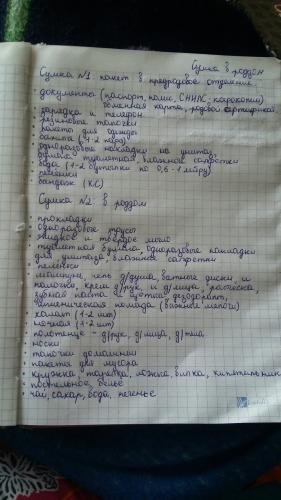 Сумка в роддом
Сумка №1: пакет в предродовое отделение
документы (паспорт, полис, СНИЛС - ксерокопии)
обменная карта, родовой сертификат
зарядка и телефон
резиновые тапочки
пакет для одежды
сорочка (1-2 пара)
одноразовые накладки на унитаз,
бумага туалетная, влажные салфетки
вода (1-2 бутылки по 0,5-1 литру)
пелёнки
бандаж (КС)
Сумка №2: в роддом
прокладки
одноразовые трусы
жидкое и твердое мыло
туалетная бумага, одноразовые накладки
для унитаза, влажные салфетки
пеленки
шампунь, гель д/душа, ватные диски и
палочки, крем д/рук, и д/лица, расческа,
зубная паста и щетка, дезодорант,
гигиеническая помада (важные мелочи)
халат (1-2 шт)
ночная (1-2 шт)
полотенце - д/рук, д/лица, д/тела
носки
тапочки домашние
пакеты для мусора
кружка, тарелка, ложка, вилка, кипятильник
постельное бельё
чай, сахар, вода, печенье